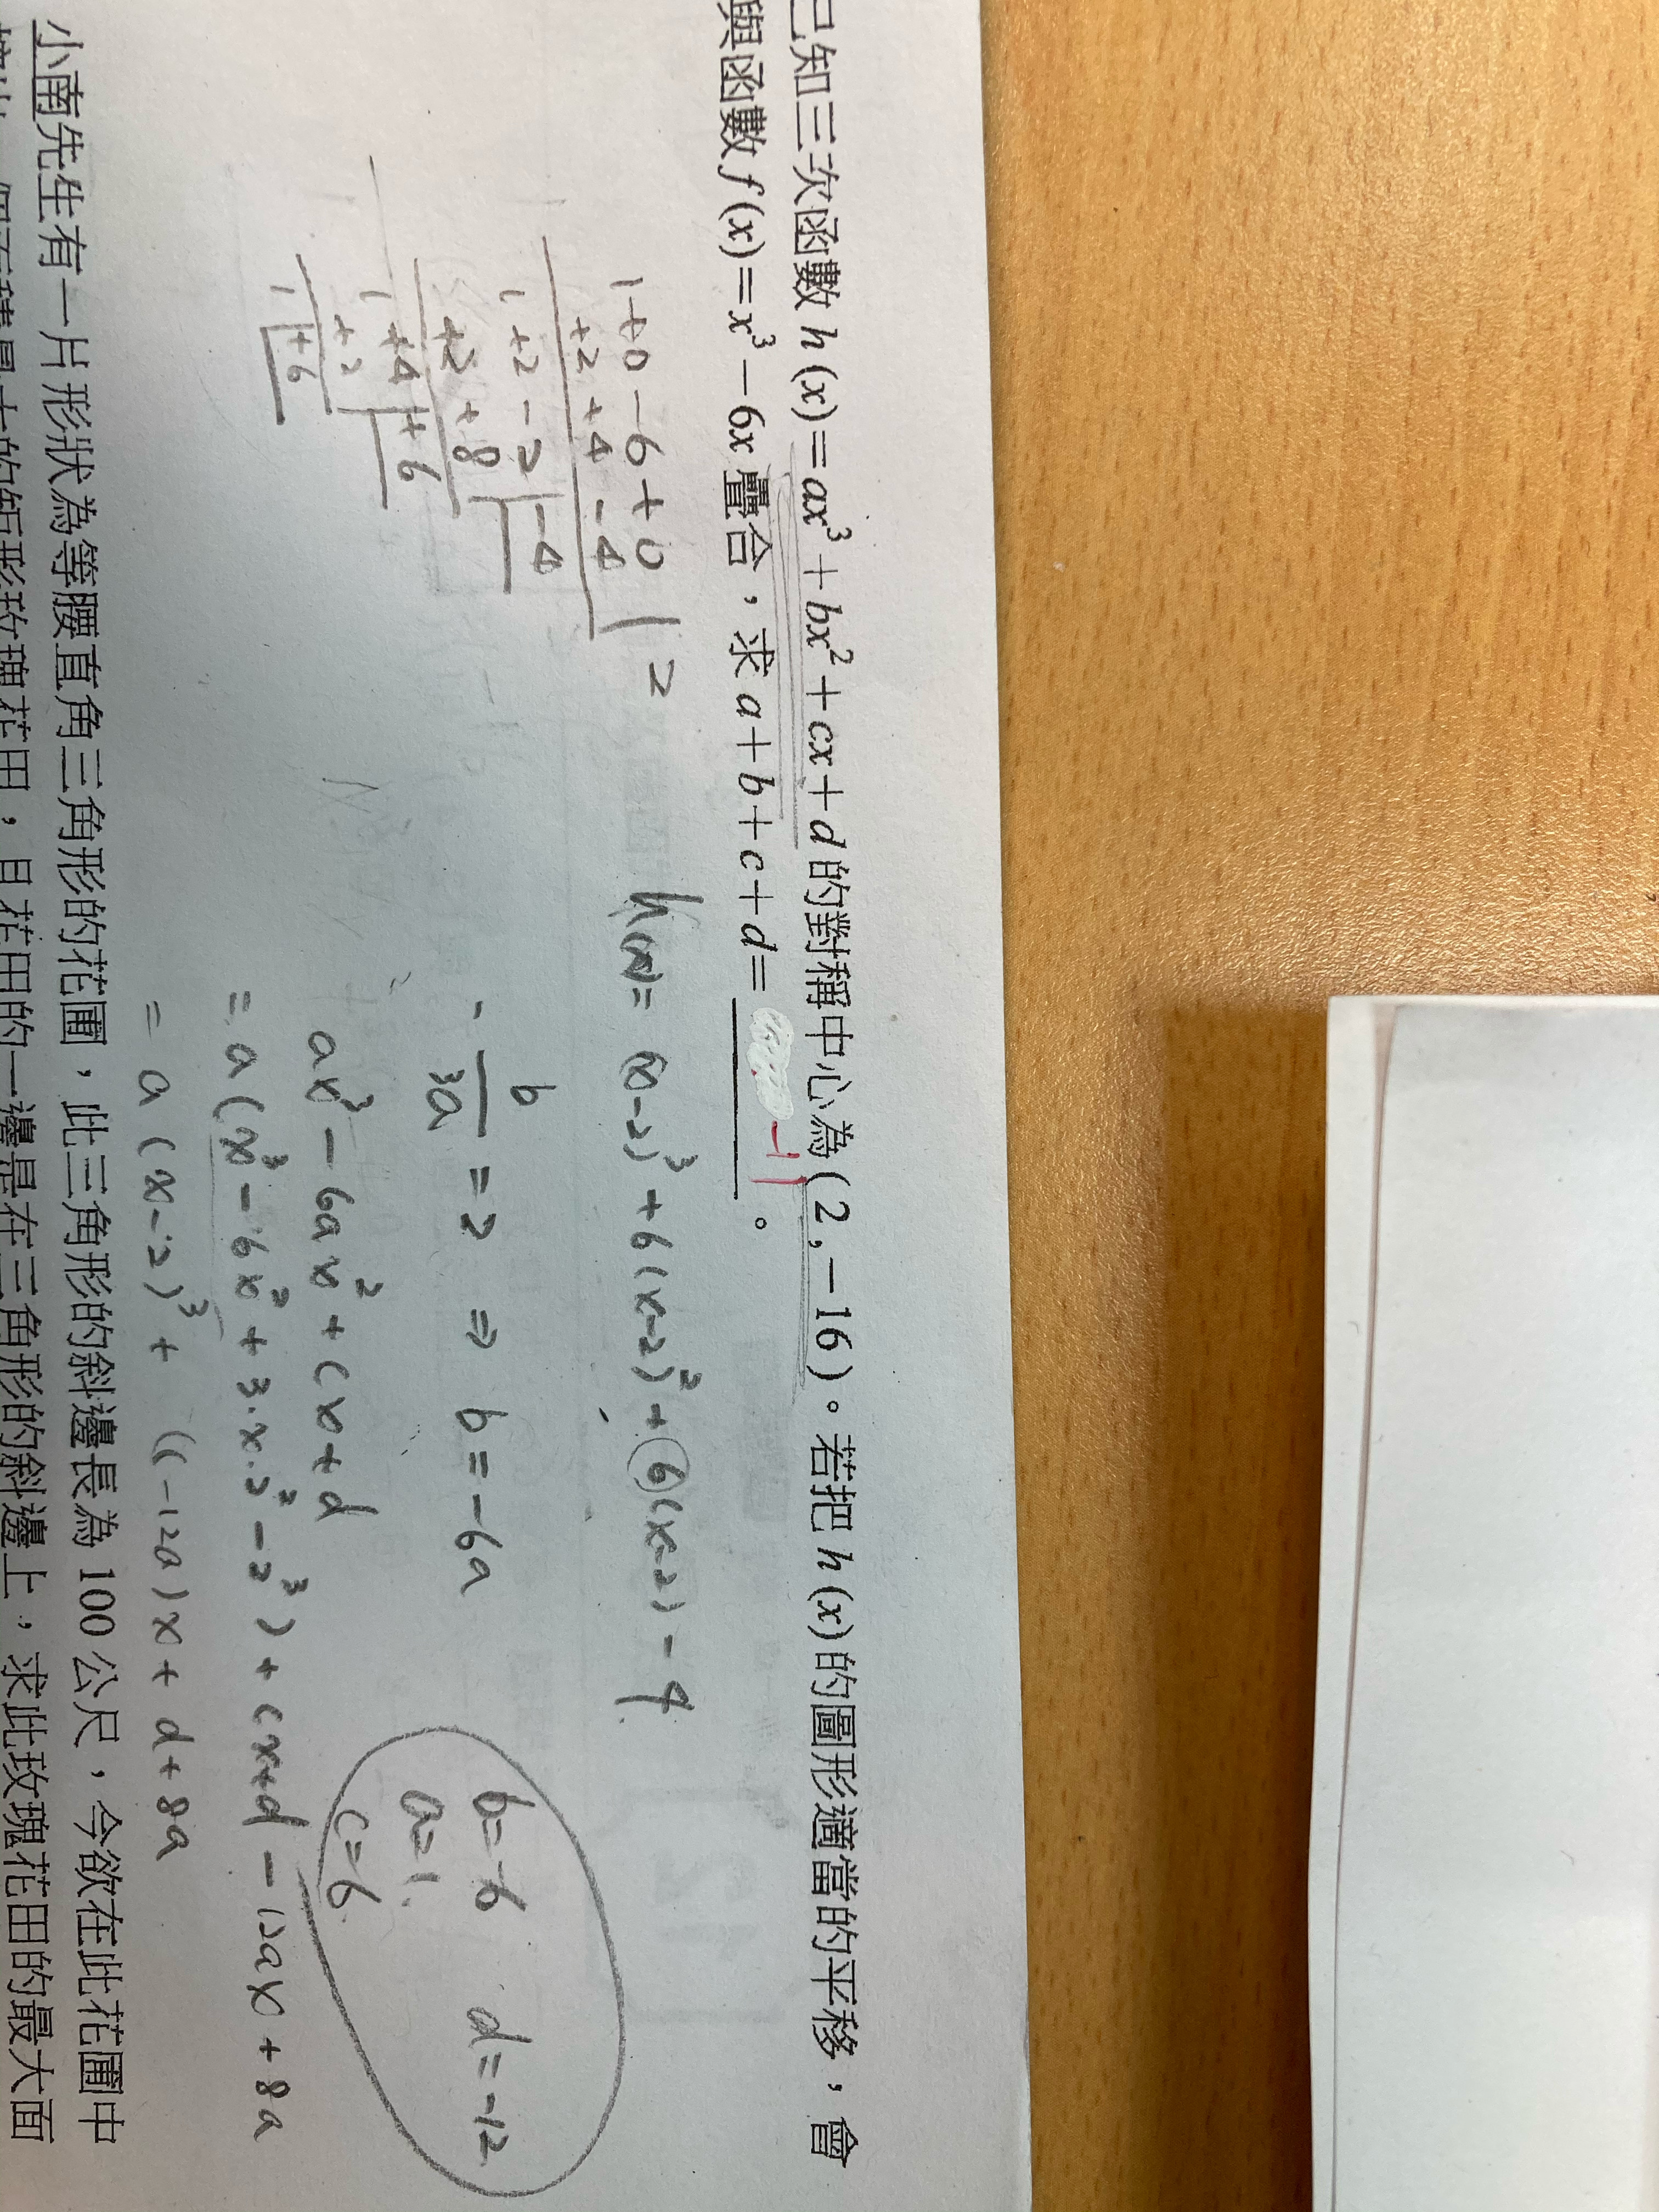 已知三次函數 h(x)=ax³+bx²+cx+d 的對稱中心為(2,−16)。若把 h(x)的圖形適當的平移,會
與函數 f(x)=x³−6x 疊合,求 a+b+c+d= -11 。
1+0-6+0 | 2
+2+4-4
1+2-2 -4
+2+8
1+4 +6
+2
1 +6
h(x)= (x-2)³+6(x-2)²+6(x-2)-4
-b/3a = 2 ⇒ b=-6a
ax³-6ax²+cx+d
= a(x³-6x²+3·x·2²-2³)+cx+d-12ax+8a
= a(x-2)³+(c-12a)x+d+8a
b=-6 d=-12
a=1
c=6
小南先生有一片形狀為等腰直角三角形的花圃,此三角形的斜邊長為 100 公尺,今欲在此花圃中
矩形玫瑰花田,且花田的一邊是在三角形的斜邊上,求此玫瑰花田的最大面